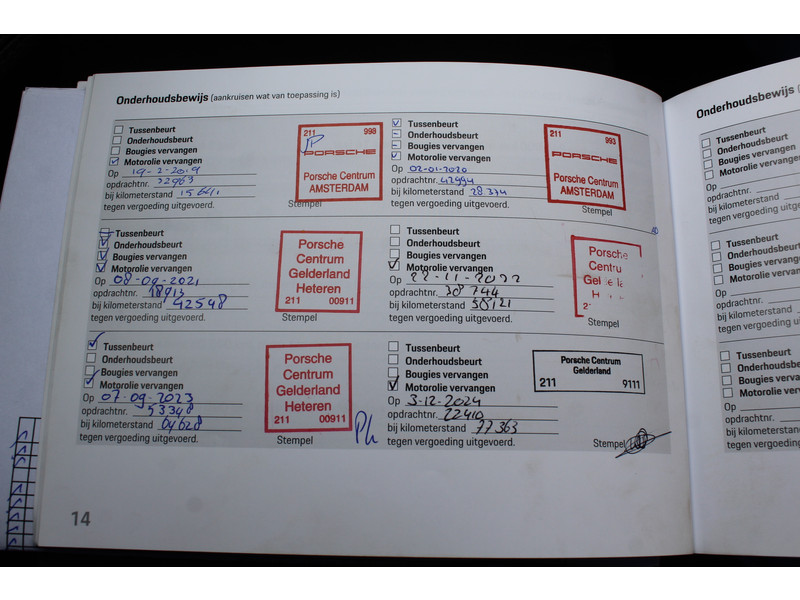 Onderhoudsbewijs (aankruisen wat van toepassing is)
Tussenbeurt
Onderhoudsbeurt
Bougies vervangen
Motorolie vervangen
Op 19-2-2019
opdrachtnr. 32963
bij kilometerstand 15641
tegen vergoeding uitgevoerd.
211 998
PORSCHE
Porsche Centrum
AMSTERDAM
Stempel
Tussenbeurt
Onderhoudsbeurt
Bougies vervangen
Motorolie vervangen
Op 02-01-2020
opdrachtnr. 42994
bij kilometerstand 28374
tegen vergoeding uitgevoerd.
211 993
PORSCHE
Porsche Centrum
AMSTERDAM
Stempel
Tussenbeurt
Onderhoudsbeurt
Bougies vervangen
Motorolie vervangen
Op 08-09-2021
opdrachtnr. 18913
bij kilometerstand 42548
tegen vergoeding uitgevoerd.
Porsche
Centrum
Gelderland
Heteren
211 00911
Stempel
Tussenbeurt
Onderhoudsbeurt
Bougies vervangen
Motorolie vervangen
Op 22-11-2022
opdrachtnr. 38744
bij kilometerstand 58121
tegen vergoeding uitgevoerd.
Porsche
Centru
Gel
H
2
Stempel
Tussenbeurt
Onderhoudsbeurt
Bougies vervangen
Motorolie vervangen
Op 07-09-2023
opdrachtnr. 53348
bij kilometerstand 64628
tegen vergoeding uitgevoerd.
Porsche
Centrum
Gelderland
Heteren
211 00911
Stempel
Tussenbeurt
Onderhoudsbeurt
Bougies vervangen
Motorolie vervangen
Op 3-12-2024
opdrachtnr. 72410
bij kilometerstand 77363
tegen vergoeding uitgevoerd.
Porsche Centrum
Gelderland
211 9111
Stempel
14
Onderhoudsbewijs
Tussenbeurt
Onderhoudsbeurt
Bougies vervangen
Motorolie vervangen
Op
opdrachtnr.
bij kilometerstand
tegen vergoeding
Tussenbeurt
Onderhoudsbeurt
Bougies vervangen
Motorolie vervangen
Op
opdrachtnr.
bij kilometerstand
tegen vergoeding
Tussenbeurt
Onderhoudsbeurt
Bougies vervangen
Motorolie vervangen
Op
opdrachtnr.
bij kilometerstand
tegen vergoeding